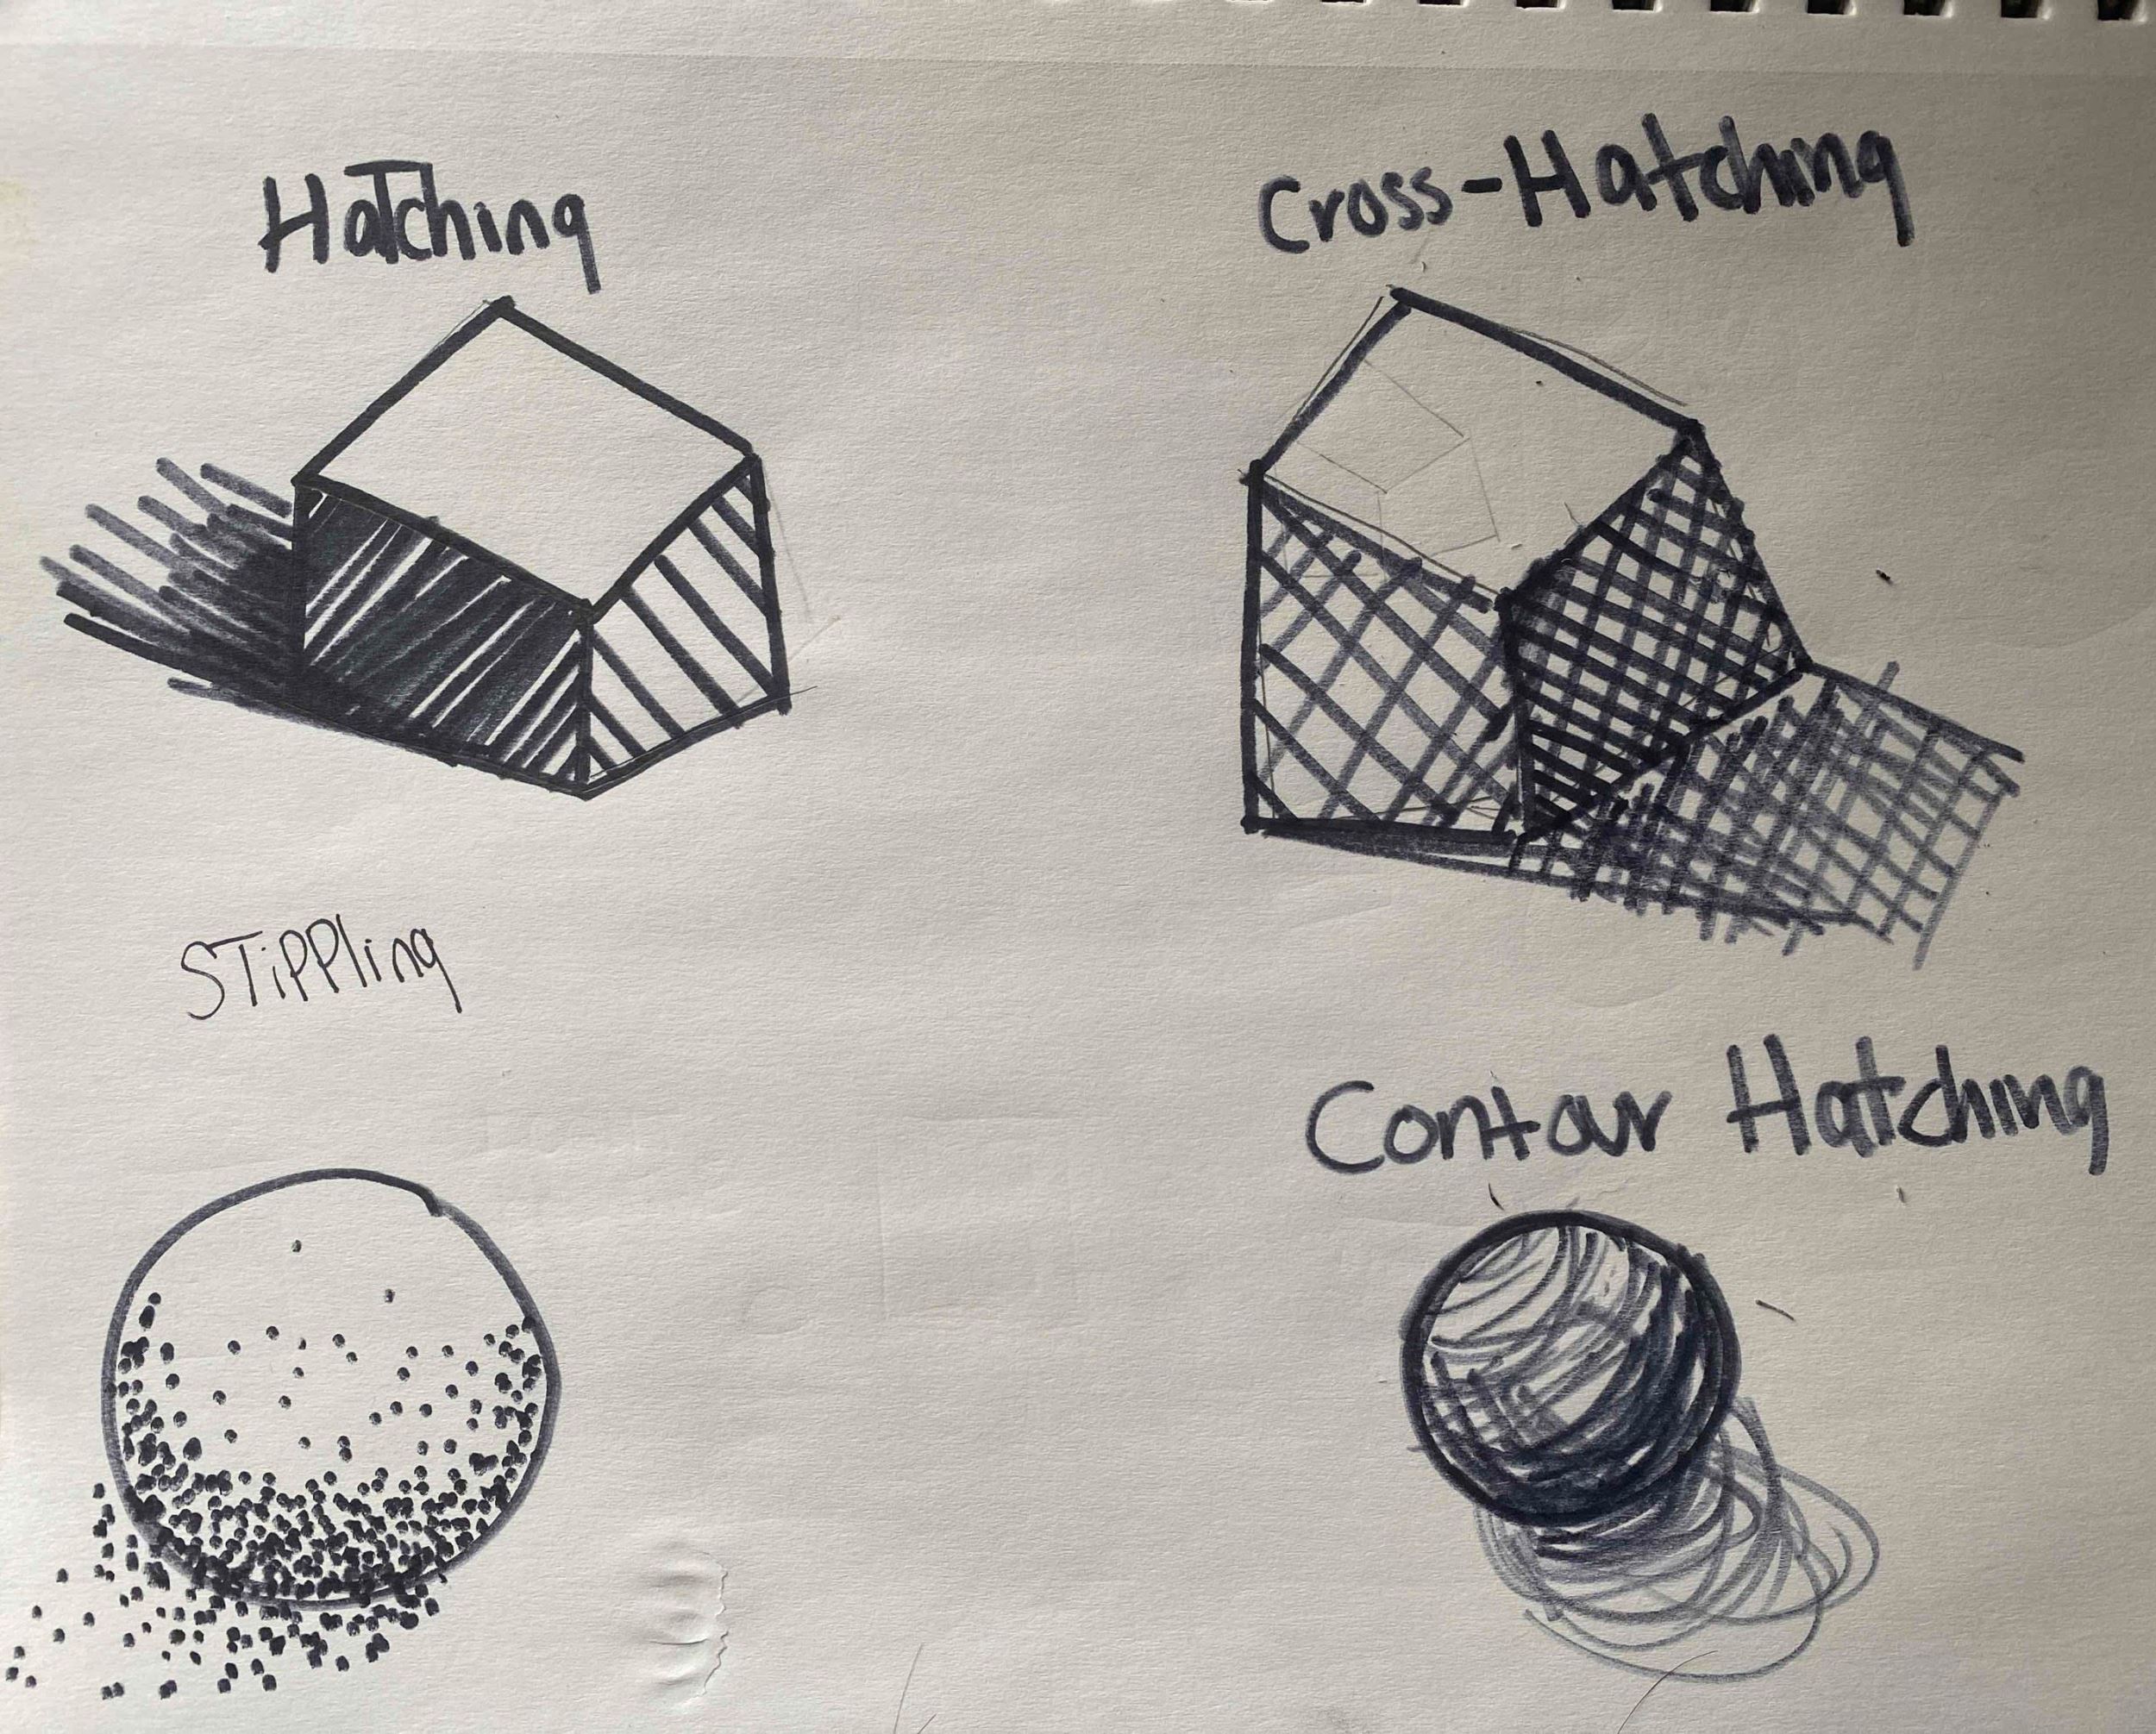 Hatching
Cross-Hatching
STiPPling
Contour Hatching